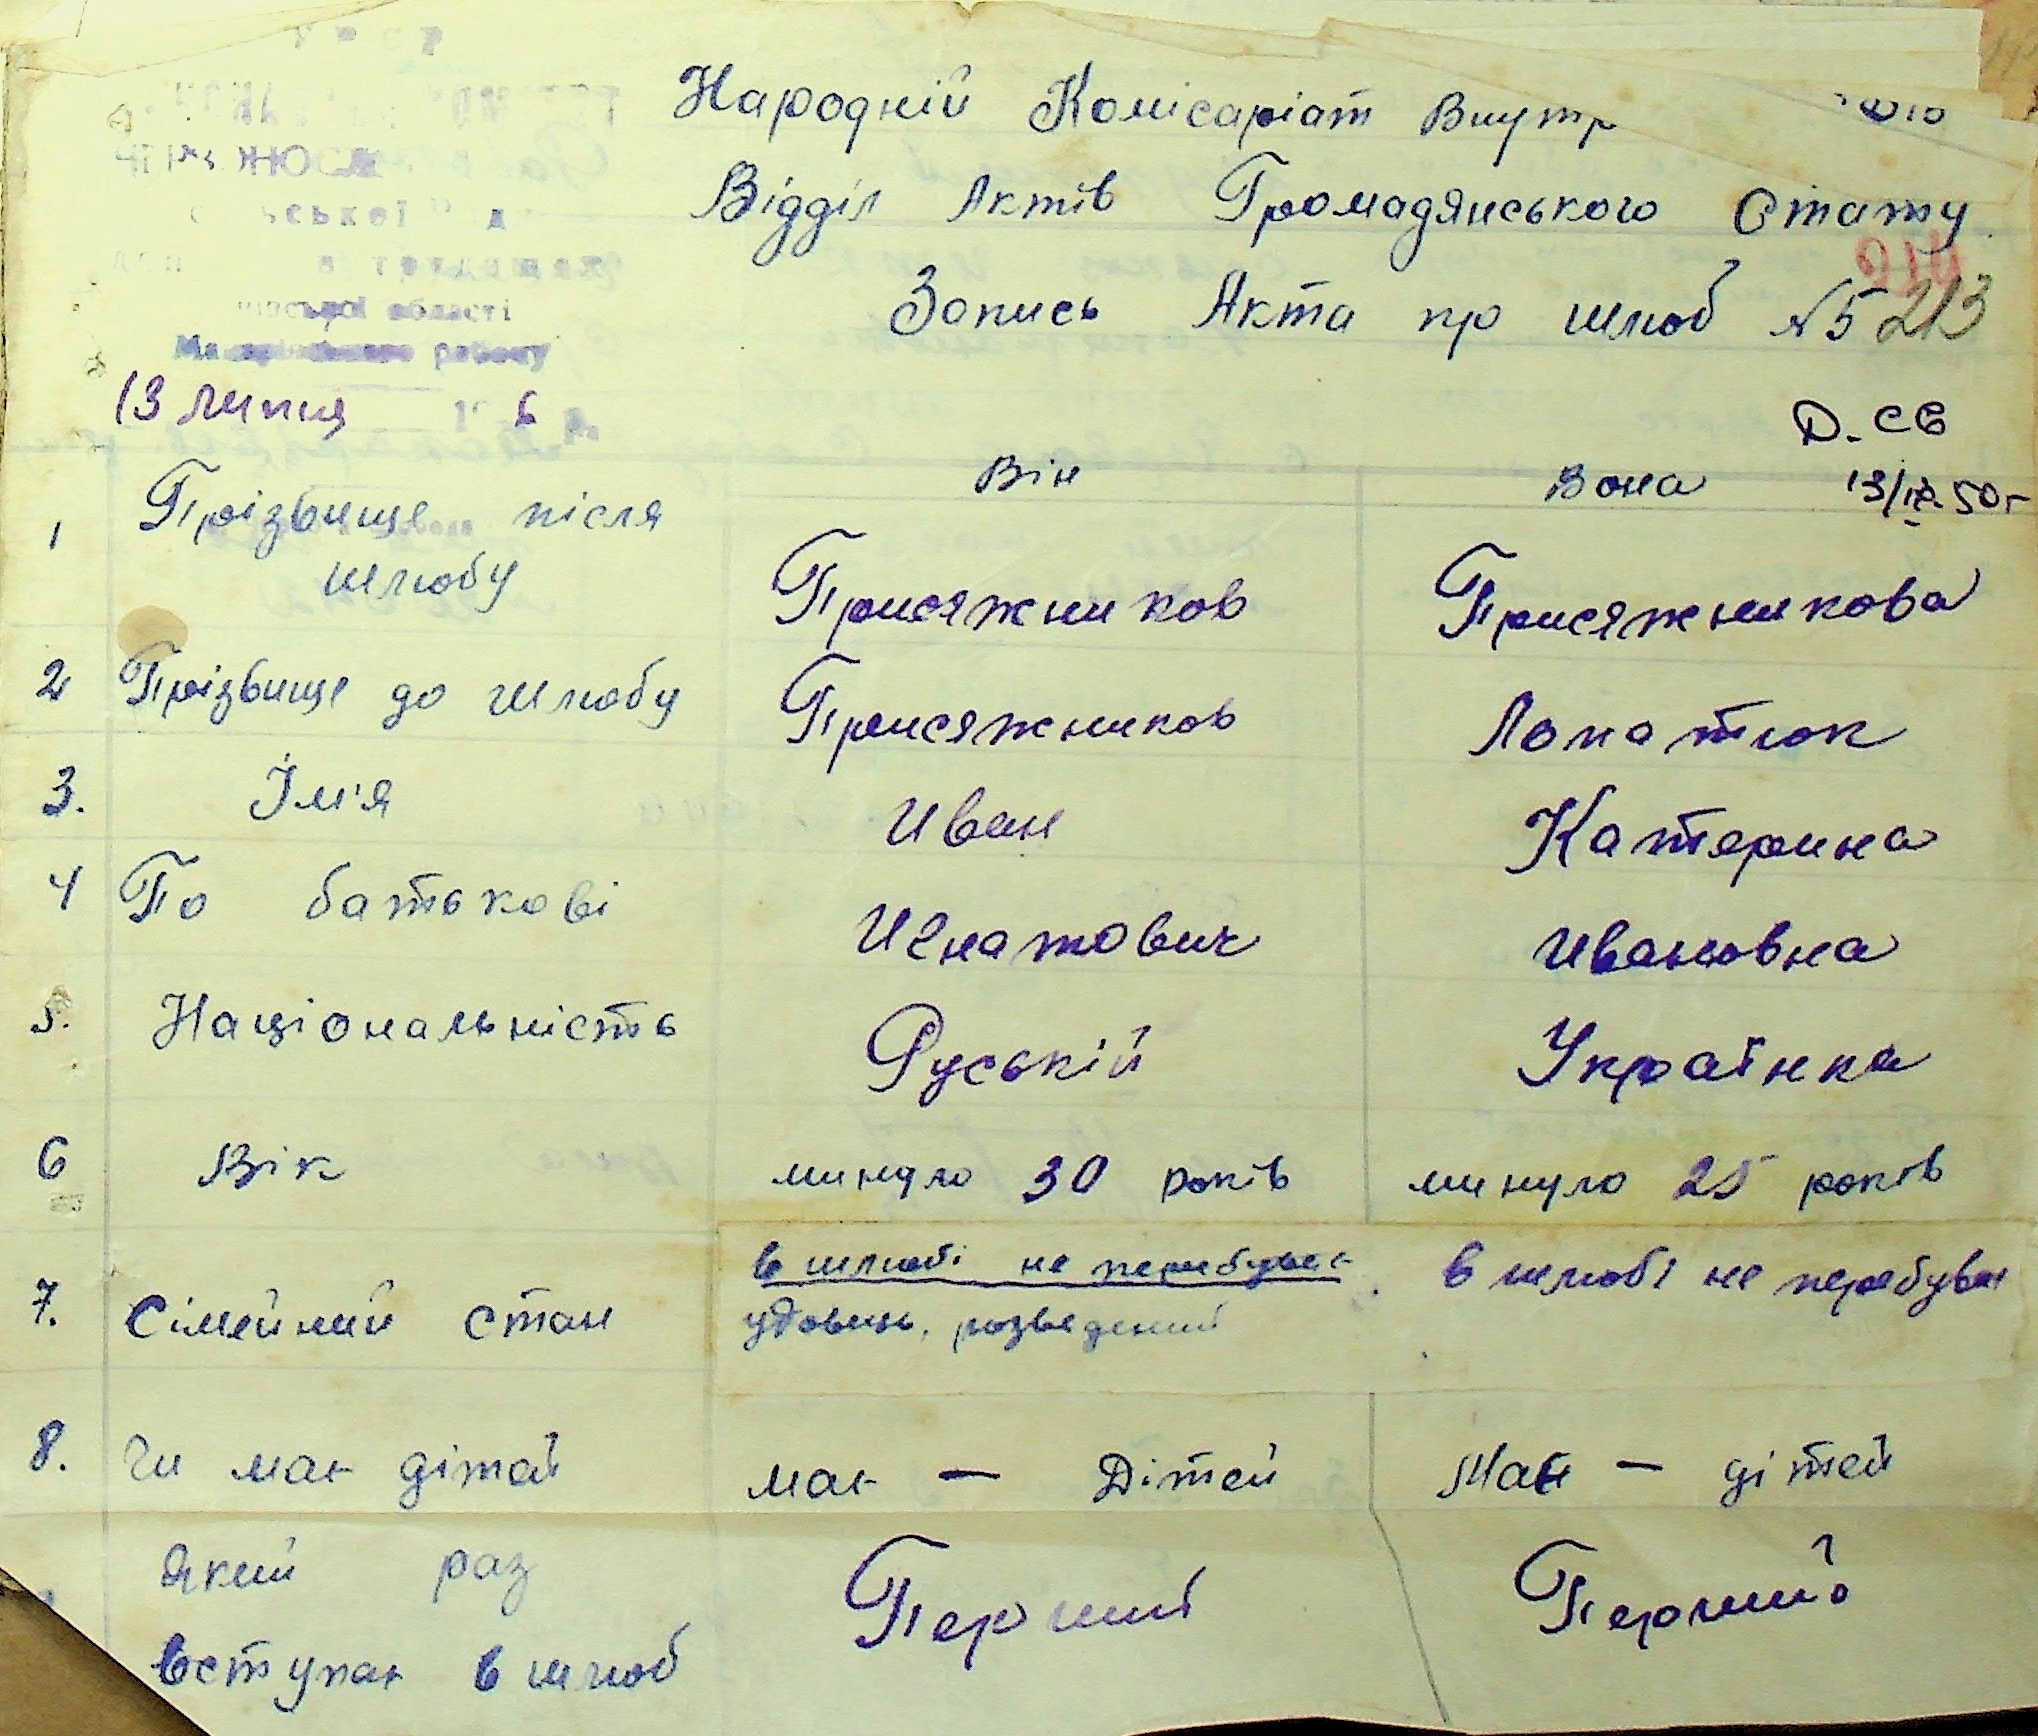 УРСР
Народній Комісаріат Внутр
Відділ Актів Громадянського Стату
214
Запись Акта про шлюб №5 213
області
району
13 липня 6
Д. СВ
Він Вона 13/IX 50 г
1 Прізвище після
шлюбу Присяжников Присяжникова
2 Прізвище до шлюбу Присяжников Лопатюк
3. Їм'я Иван Катерина
4 По батькові Игнатович Ивановна
5. Національність Руській Українка
6 Вік минуло 30 років минуло 25 років
7. Сімейний стан в шлюбі не перебував в шлюбі не перебував
удовець, розведений
8. Чи має дітей має — Дітей Має — дітей
Який раз Перший Перший
вступає в шлюб